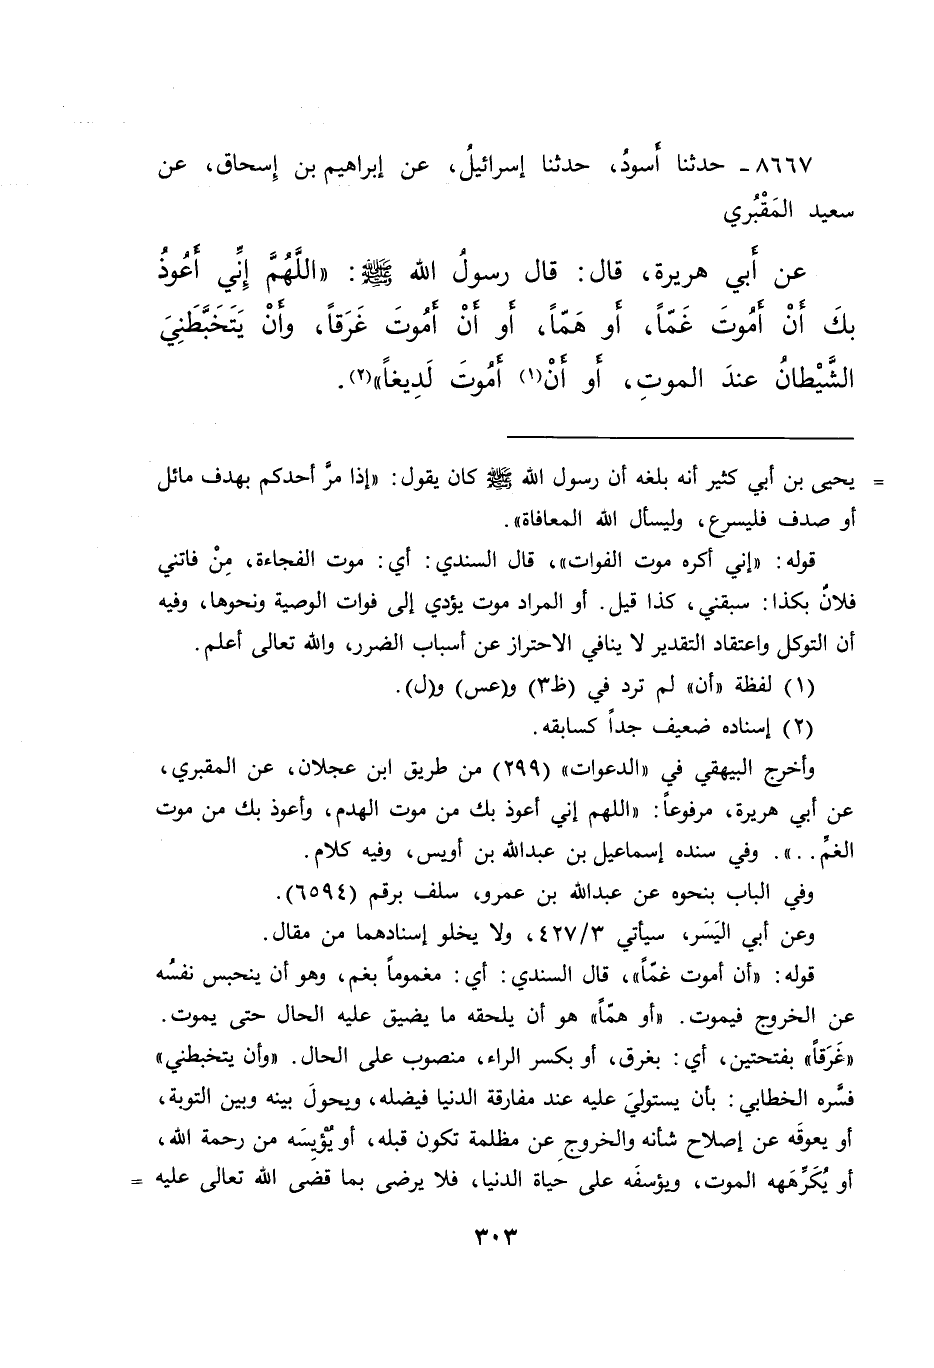 ٨٦٦٧ـ حدثنا أَسودُ، حدثنا إسرائيلُ، عن إبراهيم بن إِسحاق، عن
سعيد المَقْبُري
عن أَبي هريرة، قال: قال رسولُ الله ﷺ: «اللَّهُمَّ إِنِّي أَعُوذُ
بكَ أَنْ أَمُوتَ غَمّاً، أَو هَمّاً، أَو أَنْ أَمُوتَ غَرَقاً، وأَنْ يَتَخَبَّطَنِيَ
الشَّيْطانُ عندَ الموتِ، أَو أَنْ(١) أَمُوتَ لَدِيغاً»(٢).
= يحيى بن أبي كثير أنه بلغه أن رسول الله ﷺ كان يقول: «إذا مرَّ أحدكم بهدف مائل
أو صدف فليسرع، وليسأل الله المعافاة».
قوله: «إني أكره موت الفوات»، قال السندي: أي: موت الفجاءة، مِنْ فاتني
فلانٌ بكذا: سبقني، كذا قيل. أو المراد موت يؤدي إلى فوات الوصية ونحوها، وفيه
أن التوكل واعتقاد التقدير لا ينافي الاحتراز عن أسباب الضرر، والله تعالى أعلم.
(١) لفظة «أن» لم ترد في (ظ٣) و(عس) و(ل).
(٢) إسناده ضعيف جداً كسابقه.
وأخرج البيهقي في «الدعوات» (٢٩٩) من طريق ابن عجلان، عن المقبري،
عن أبي هريرة، مرفوعاً: «اللهم إني أعوذ بك من موت الهدم، وأعوذ بك من موت
الغمِّ...». وفي سنده إسماعيل بن عبدالله بن أويس، وفيه كلام.
وفي الباب بنحوه عن عبدالله بن عمرو، سلف برقم (٦٥٩٤).
وعن أبي اليَسَر، سيأتي ٤٢٧/٣، ولا يخلو إسنادهما من مقال.
قوله: «أن أموت غمّاً»، قال السندي: أي: مغموماً بغم، وهو أن ينحبس نفسُه
عن الخروج فيموت. «أو همّاً» هو أن يلحقه ما يضيق عليه الحال حتى يموت.
«غَرَقاً» بفتحتين، أي: بغرق، أو بكسر الراء، منصوب على الحال. «وأن يتخبطني»
فسَّره الخطابي: بأن يستوليَ عليه عند مفارقة الدنيا فيضله، ويحولَ بينه وبين التوبة،
أو يعوقَه عن إصلاح شأنه والخروجِ عن مظلمة تكون قبله، أو يُؤْيِسَه من رحمة الله،
أو يُكَرِّهَه الموت، ويؤسفَه على حياة الدنيا، فلا يرضى بما قضى الله تعالى عليه =
٣٠٣